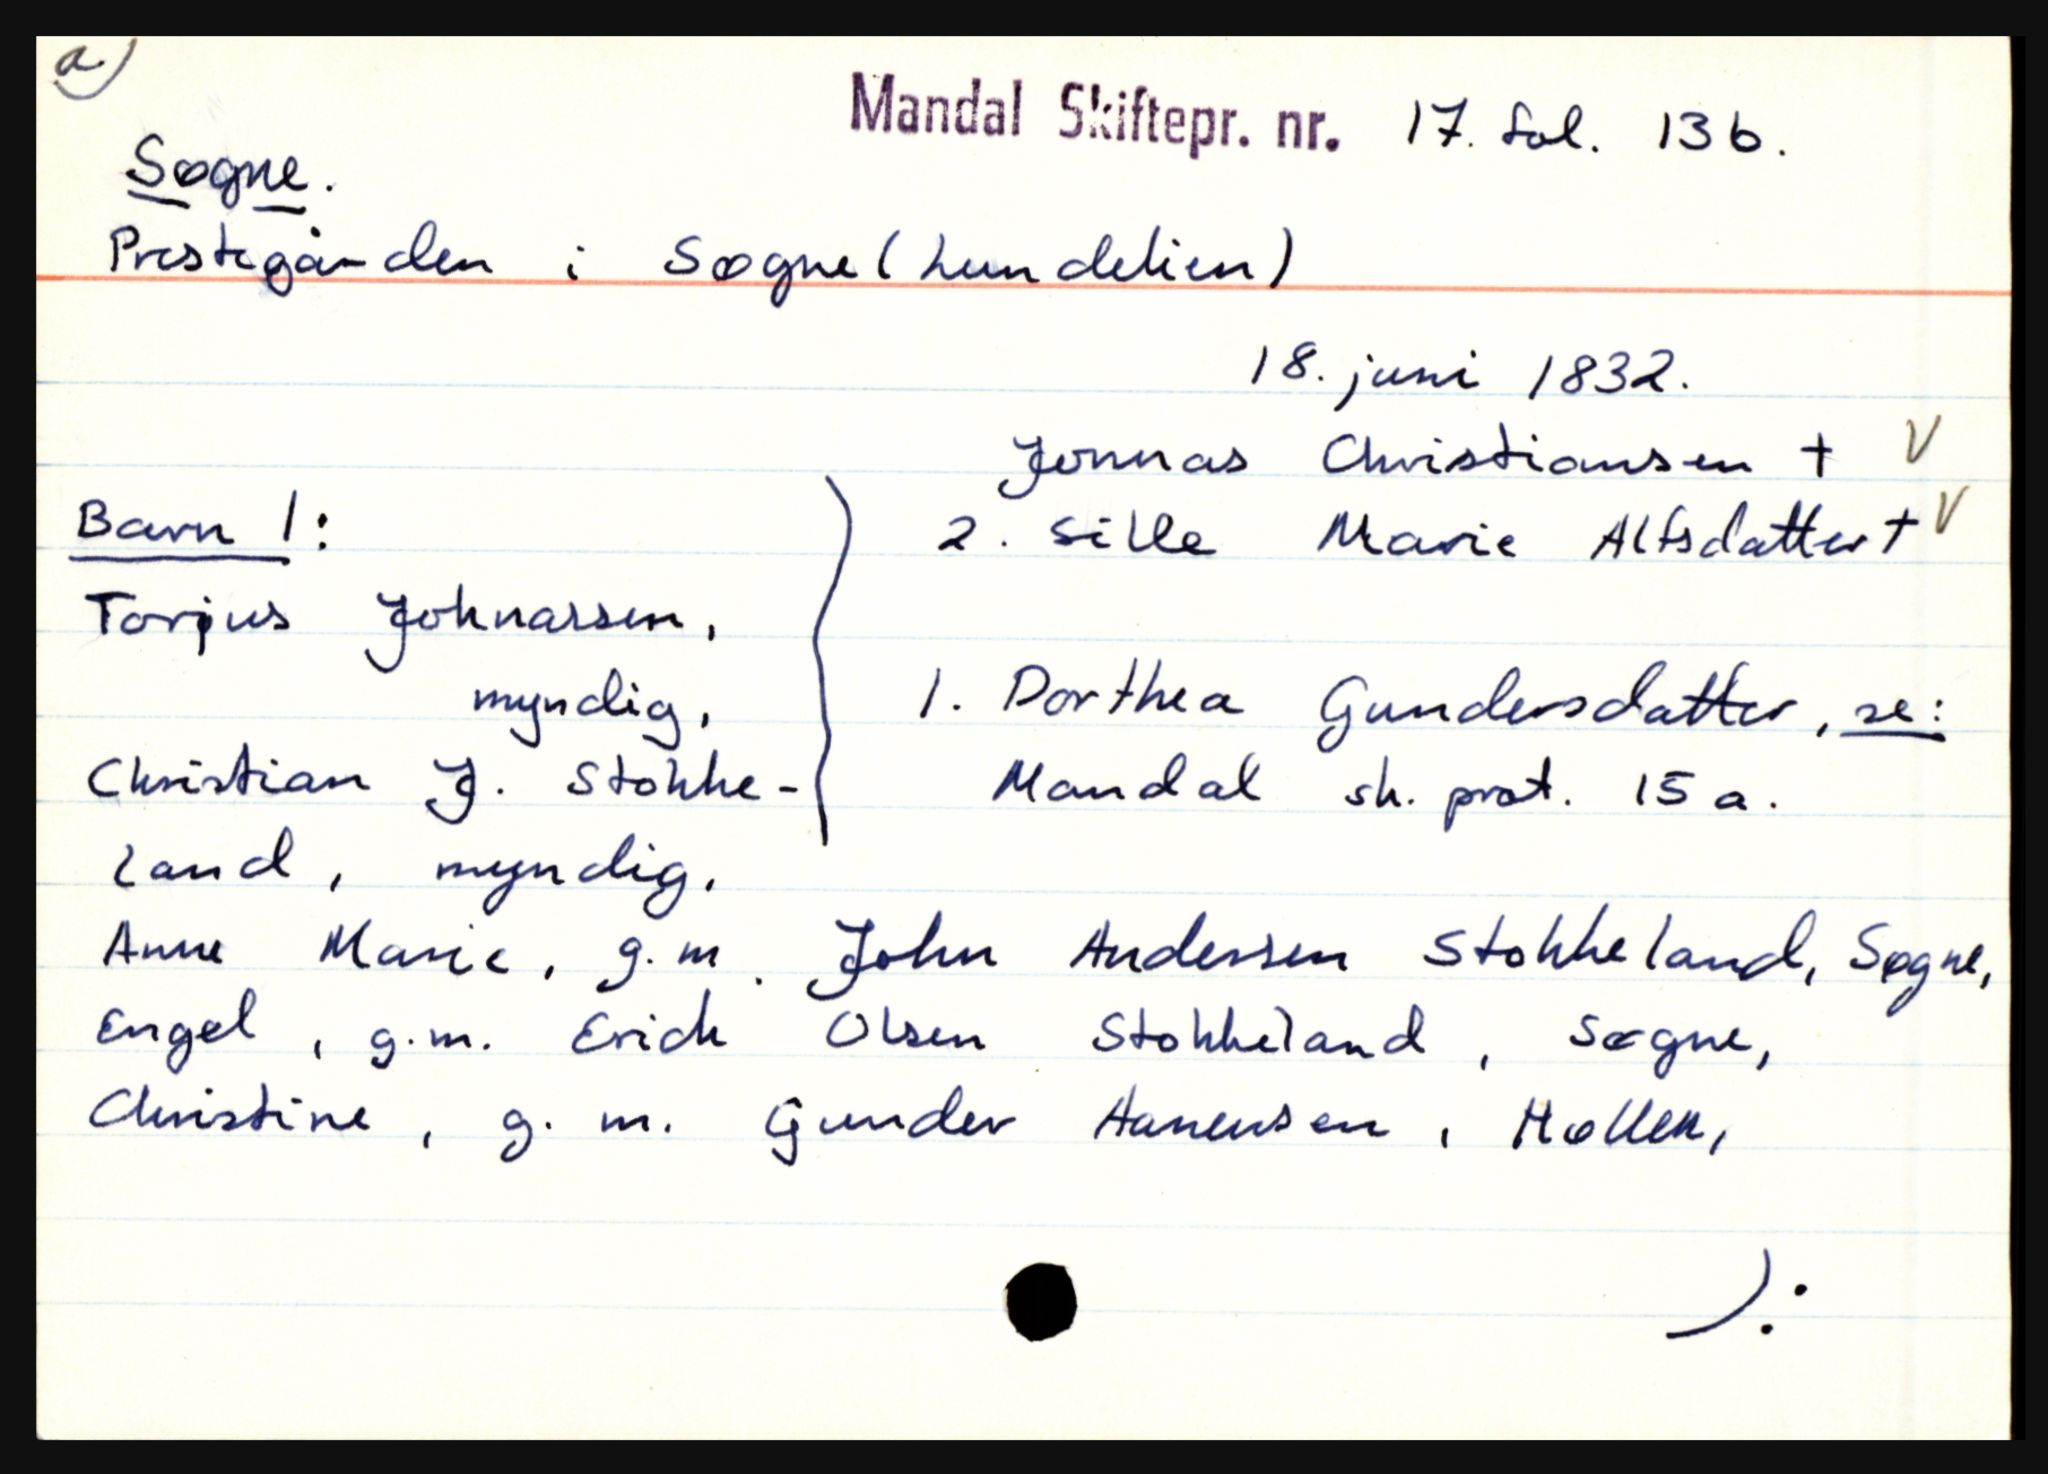 a)
Mandal Skiftepr. nr. 17. fol. 13b.
Søgne.
Prestegården i Søgne (Lundelien)
18. juni 1832.
Jonnas Christiansen † V
2. Sille Marie Alfsdatter † V
Barn 1:
Torjus Johnassen,
myndig,
1. Dorthea Gundersdatter, se:
Mandal sk. prot. 15 a.
Christian J. Stokke-
land, myndig,
Anne Marie, g.m. John Andersen Stokkeland, Søgne,
Engel, g.m. Erich Olsen Stokkeland, Søgne,
Christine, g.m. Gunder Aanensen, Høllen,
):